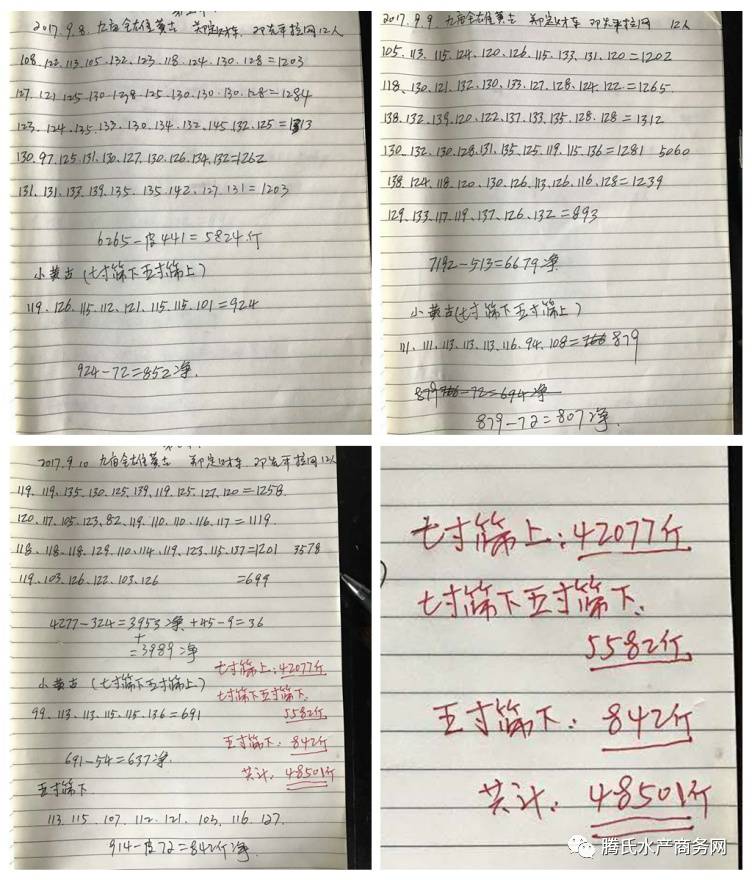 2017.9.8. 九宙全雄黄古 郑定财车 邓先平拉网 12人
108. 122. 113. 105. 132. 123. 118. 124. 130. 128 = 1203
127. 121. 125. 130. 138. 125. 130. 130. 130. 128 = 1284
123. 124. 135. 133. 130. 134. 132. 145. 132. 125 = 1313
130. 97. 125. 131. 130. 127. 130. 126. 134. 132 = 1262
131. 131. 133. 139. 135. 135. 142. 127. 131 = 1203
6265 - 皮441 = 5824斤
小黄古 (七寸筛下五寸筛上)
119. 126. 115. 112. 121. 115. 115. 101 = 924
924 - 72 = 852净.
2017.9.9 九宙全雄黄古 郑定财车 邓先平拉网 12人
105. 113. 115. 124. 120. 126. 115. 133. 131. 120 = 1202
118. 130. 121. 132. 130. 133. 127. 128. 124. 122 = 1265.
138. 132. 139. 120. 122. 137. 133. 135. 128. 128 = 1312
130. 132. 130. 128. 131. 135. 125. 119. 115. 136 = 1281 5060
138. 124. 118. 120. 130. 126. 113. 126. 116. 128 = 1239
129. 133. 117. 119. 137. 126. 132 = 893
7192 - 513 = 6679净.
小黄古 (七寸筛下五寸筛上)
111. 111. 113. 113. 113. 116. 94. 108 = 766 879
879 766 - 72 = 694净
879 - 72 = 807净.
2017.9.10 九宙全雄黄古 郑定财车 邓先平拉网 12人
119. 119. 135. 130. 125. 139. 119. 125. 127. 120 = 1258.
120. 117. 105. 123. 82. 119. 110. 110. 116. 117 = 1119.
118. 118. 118. 129. 110. 114. 119. 123. 115. 137 = 1201 3578
119. 103. 126. 122. 103. 126 = 699
4277 - 324 = 3953净 + 45 - 9 = 36
+
= 3989净
小黄古 (七寸筛下五寸筛上)
99. 113. 113. 115. 115. 136 = 691
691 - 54 = 637净.
五寸筛下
113. 115. 107. 112. 121. 103. 116. 127.
914 - 皮72 = 842斤净.
七寸筛上: 42077斤
七寸筛下五寸筛下.
5582斤
五寸筛下: 842斤
共计: 48501斤
七寸筛上: 42077斤
七寸筛下五寸筛下.
5582斤
五寸筛下: 842斤
共计: 48501斤
腾氏水产商务网